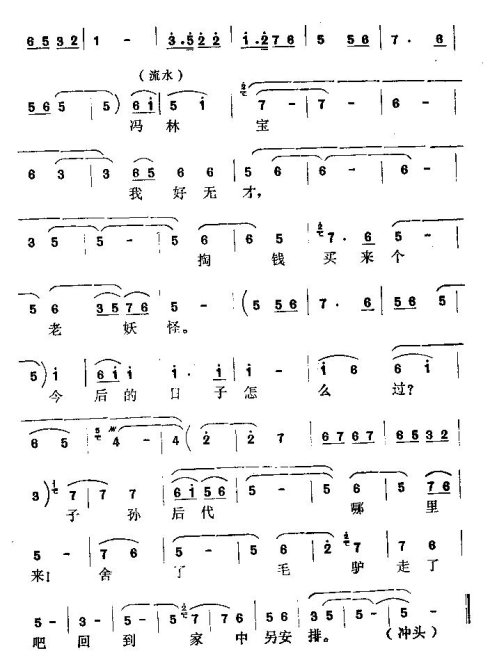 6 5 3 2 | 1 - | 3·5 2 2 | 1·2 7 6 | 5 5 6 | 7· 6 |
(流水)
5 6 5 | 5 ) 6 i | 5 i | 7 - | 7 - | 6 - |
冯 林 宝
6 3 | 3 6 5 | 6 6 | 5 6 | 6 - | 6 - |
我 好 无 才,
3 5 | 5 - | 5 6 | 6 5 | 7· 6 | 5 - |
掏 钱 买 来 个
5 6 | 3 5 7 6 | 5 - | ( 5 5 6 | 7· 6 | 5 6 5 |
老 妖 怪。
5 ) i | 6 i i | i· i | i i | i 6 | 6 i |
今 后 的 日 子 怎 么 过?
6 5 | 4 - | 4 ( 2 | 2 7 | 6 7 6 7 | 6 5 3 2 |
3 ) 7 | 7 7 | 6 i 5 6 | 5 - | 5 6 | 5 7 6 |
子 孙 后 代 哪 里
5 - | 7 6 | 5 - | 5 6 | 2 7 | 7 6 |
来! 舍 了 毛 驴 走 了
5 - | 3 - | 5 - | 5 7 | 7 6 | 5 6 | 3 5 | 5 - ‖
吧 回 到 家 中 另安 排。 (冲头)